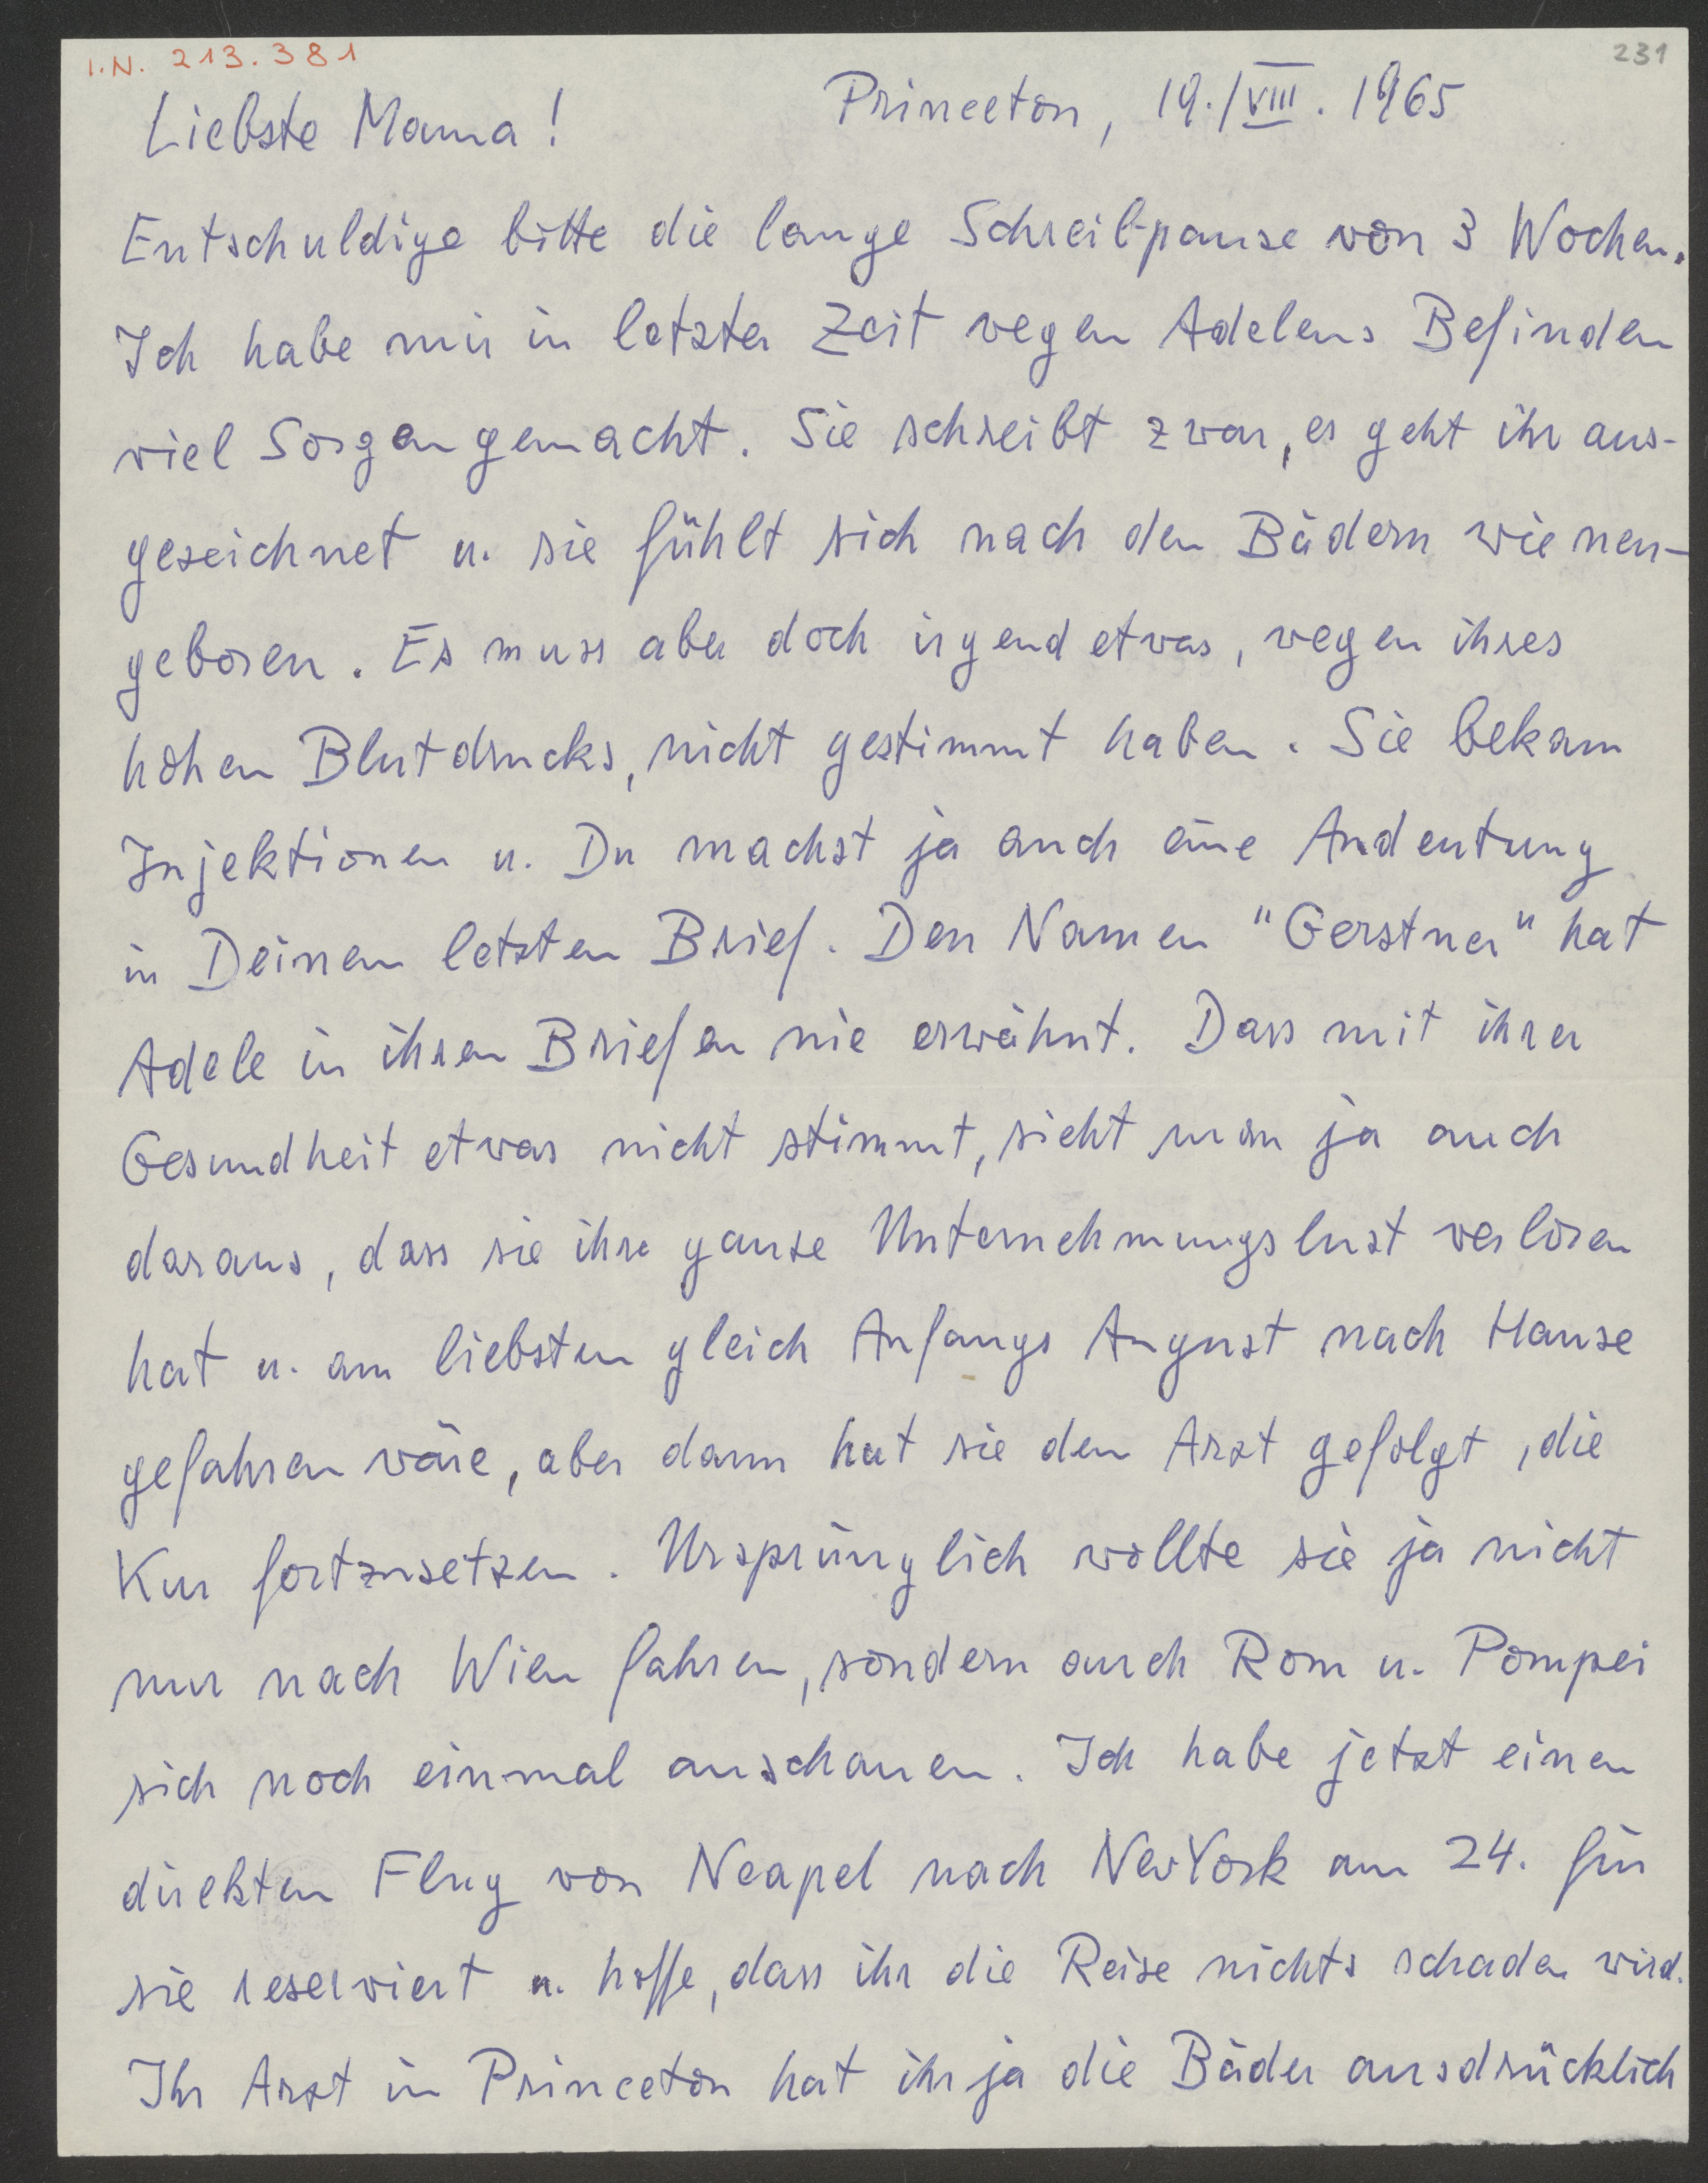 I.N. 213.381
231
Princeton, 19./VIII. 1965
Liebste Mama!
Entschuldige bitte die lange Schreibpause von 3 Wochen.
Ich habe mir in letzter Zeit wegen Adelens Befinden
viel Sorgen gemacht. Sie schreibt zwar, es geht ihr aus-
gezeichnet u. sie fühlt sich nach den Bädern wie neu-
geboren. Es muss aber doch irgend etwas, wegen ihres
hohen Blutdrucks, nicht gestimmt haben. Sie bekam
Injektionen u. Du machst ja auch eine Andeutung
in Deinem letzten Brief. Den Namen "Gerstner" hat
Adele in ihren Briefen nie erwähnt. Dass mit ihrer
Gesundheit etwas nicht stimmt, sieht man ja auch
daraus, dass sie ihre ganze Unternehmungslust verloren
hat u. am liebsten gleich Anfangs August nach Hause
gefahren wäre, aber dann hat sie dem Arzt gefolgt, die
Kur fortzusetzen. Ursprünglich wollte sie ja nicht
nur nach Wien fahren, sondern auch Rom u. Pompei
sich noch einmal anschauen. Ich habe jetzt einen
direkten Flug von Neapel nach New York am 24. für
sie reserviert u. hoffe, dass ihr die Reise nichts schaden wird.
Ihr Arzt in Princeton hat ihr ja die Bäder ausdrücklich